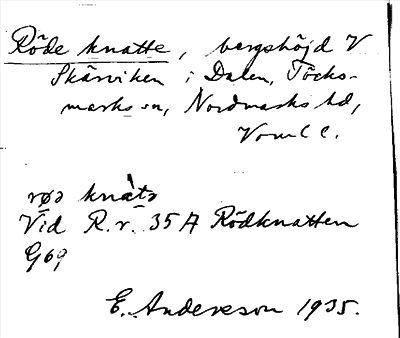 Röde knatte, bergshöjd V
Skärviken i Dalen, Töcks-
marks sn, Nordmarks hd,
Värml l.
røə knàtə
Vid R.r. 35 A Rödknatten
G69
E. Andersson 1935.